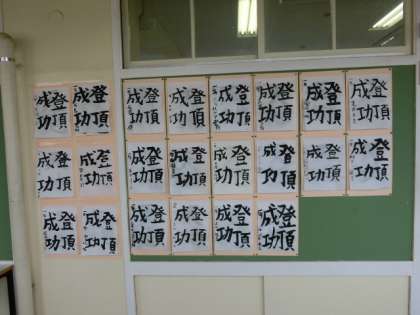 登頂
成功
登頂
成功
登頂
成功
登頂
成功
登頂
成功
登頂
成功
登頂
成功
登頂
成功
登頂
成功
登頂
成功
登頂
成功
登頂
成功
登頂
成功
登頂
成功
登頂
成功
登頂
成功
登頂
成功
登頂
成功
登頂
成功
登頂
成功
登頂
成功
登頂
成功